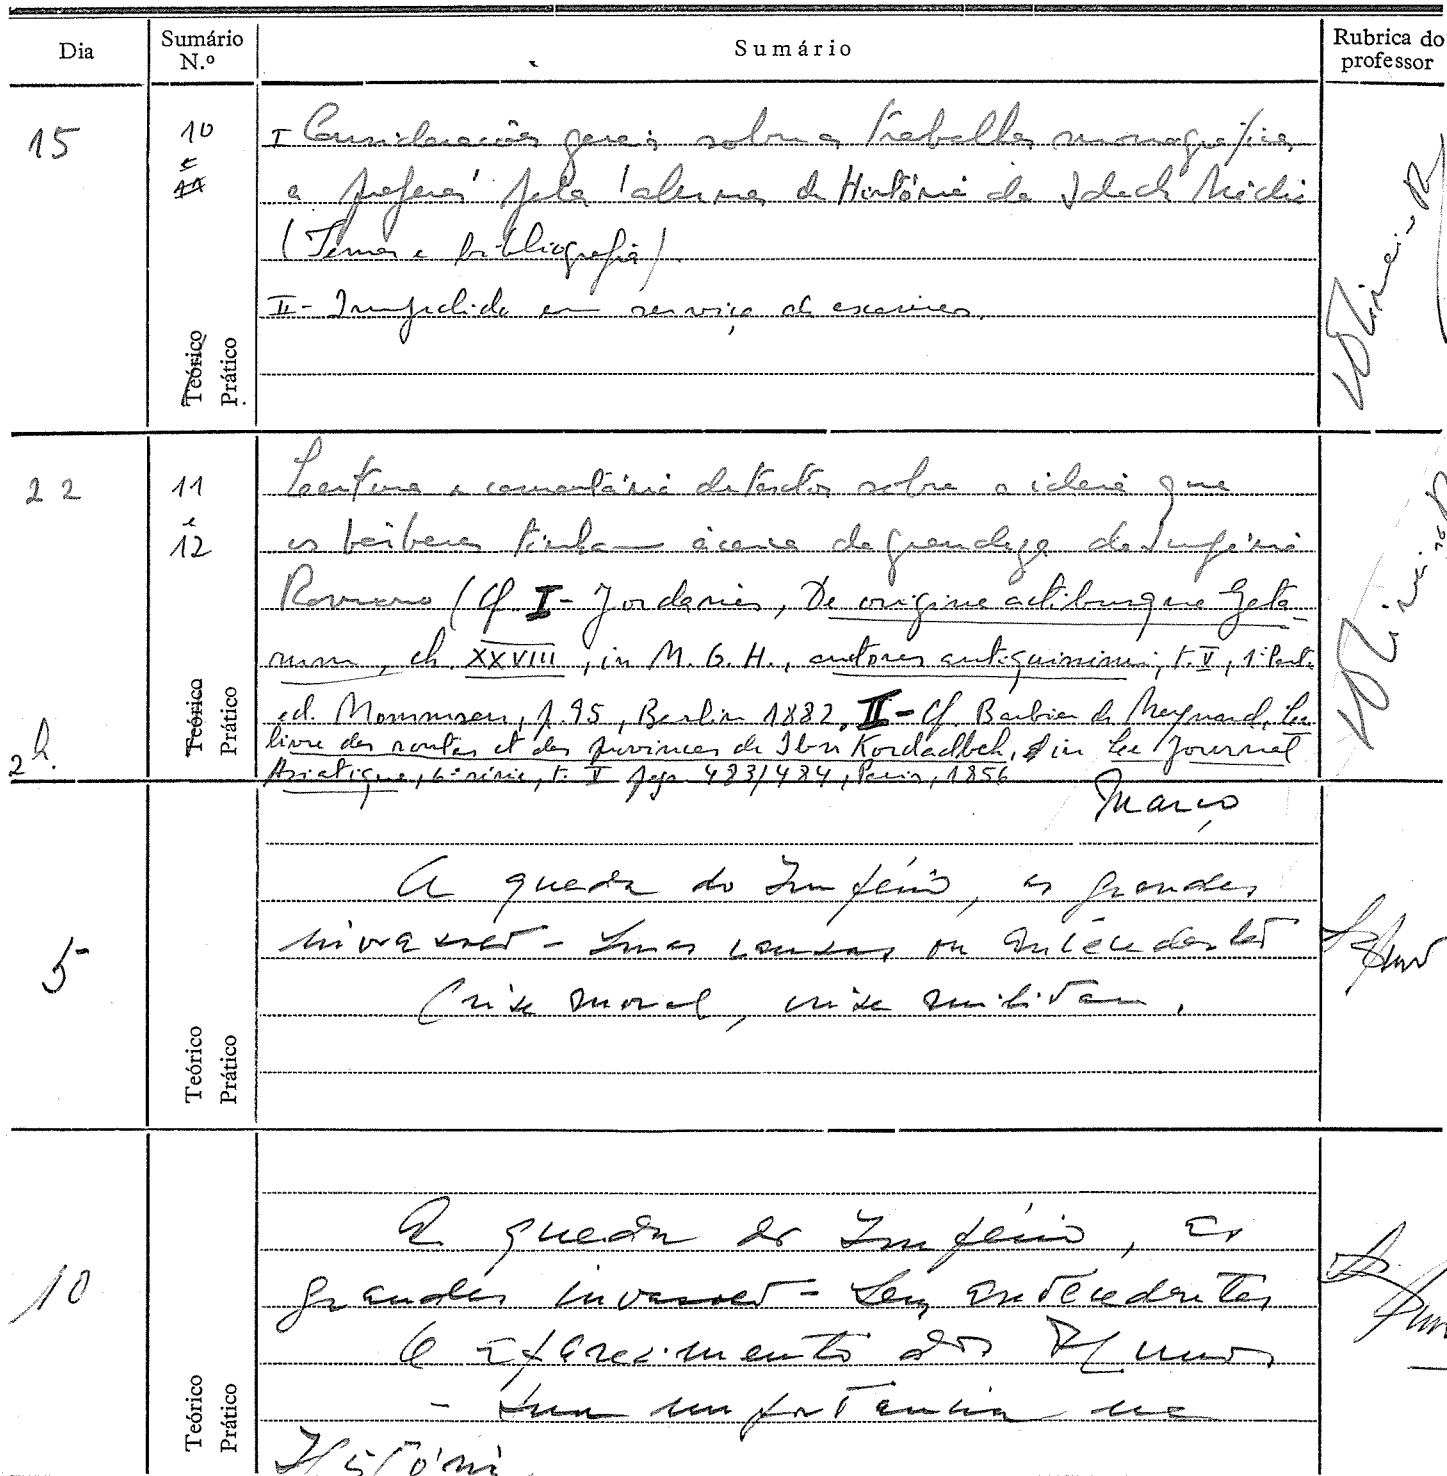 Dia
Sumário N.º
Sumário
Rubrica do professor
15
10
e
11
I Considerações gerais sobre os trabalhos monográficos
a preparar pelos alunos de História da Idade Média
(Temas e bibliografia).
II - Impedido em serviço de exames.
Teórico
Prático
22
11
e
12
2 h.
Leitura e comentário de textos sobre a ideia que
os bárbaros tinham ácerca da grandeza do Império
Romano (Cf. I - Jordanes, De origine actibusque Geta-
rum, ch. XXVIII, in M. G. H., autores antiquissimi, t. V, 1ª Parte
ed. Mommsen, p. 95, Berlin 1882, II - Cf. Barbier de Meynard, Le
livre des routes et des provinces de Ibn Kordadbeh, in Le Journal
Asiatique, 6ª série, t. V pgs. 483/484, Paris, 1856
Teórico
Prático
Março
5
A queda do Império, as grandes
invasões - Suas causas ou antecedentes
Crise moral, crise militar.
Teórico
Prático
10
A queda do Império, as
grandes invasões - Seus antecedentes
O aparecimento dos Hunos
- Sua importância na
História.
Teórico
Prático